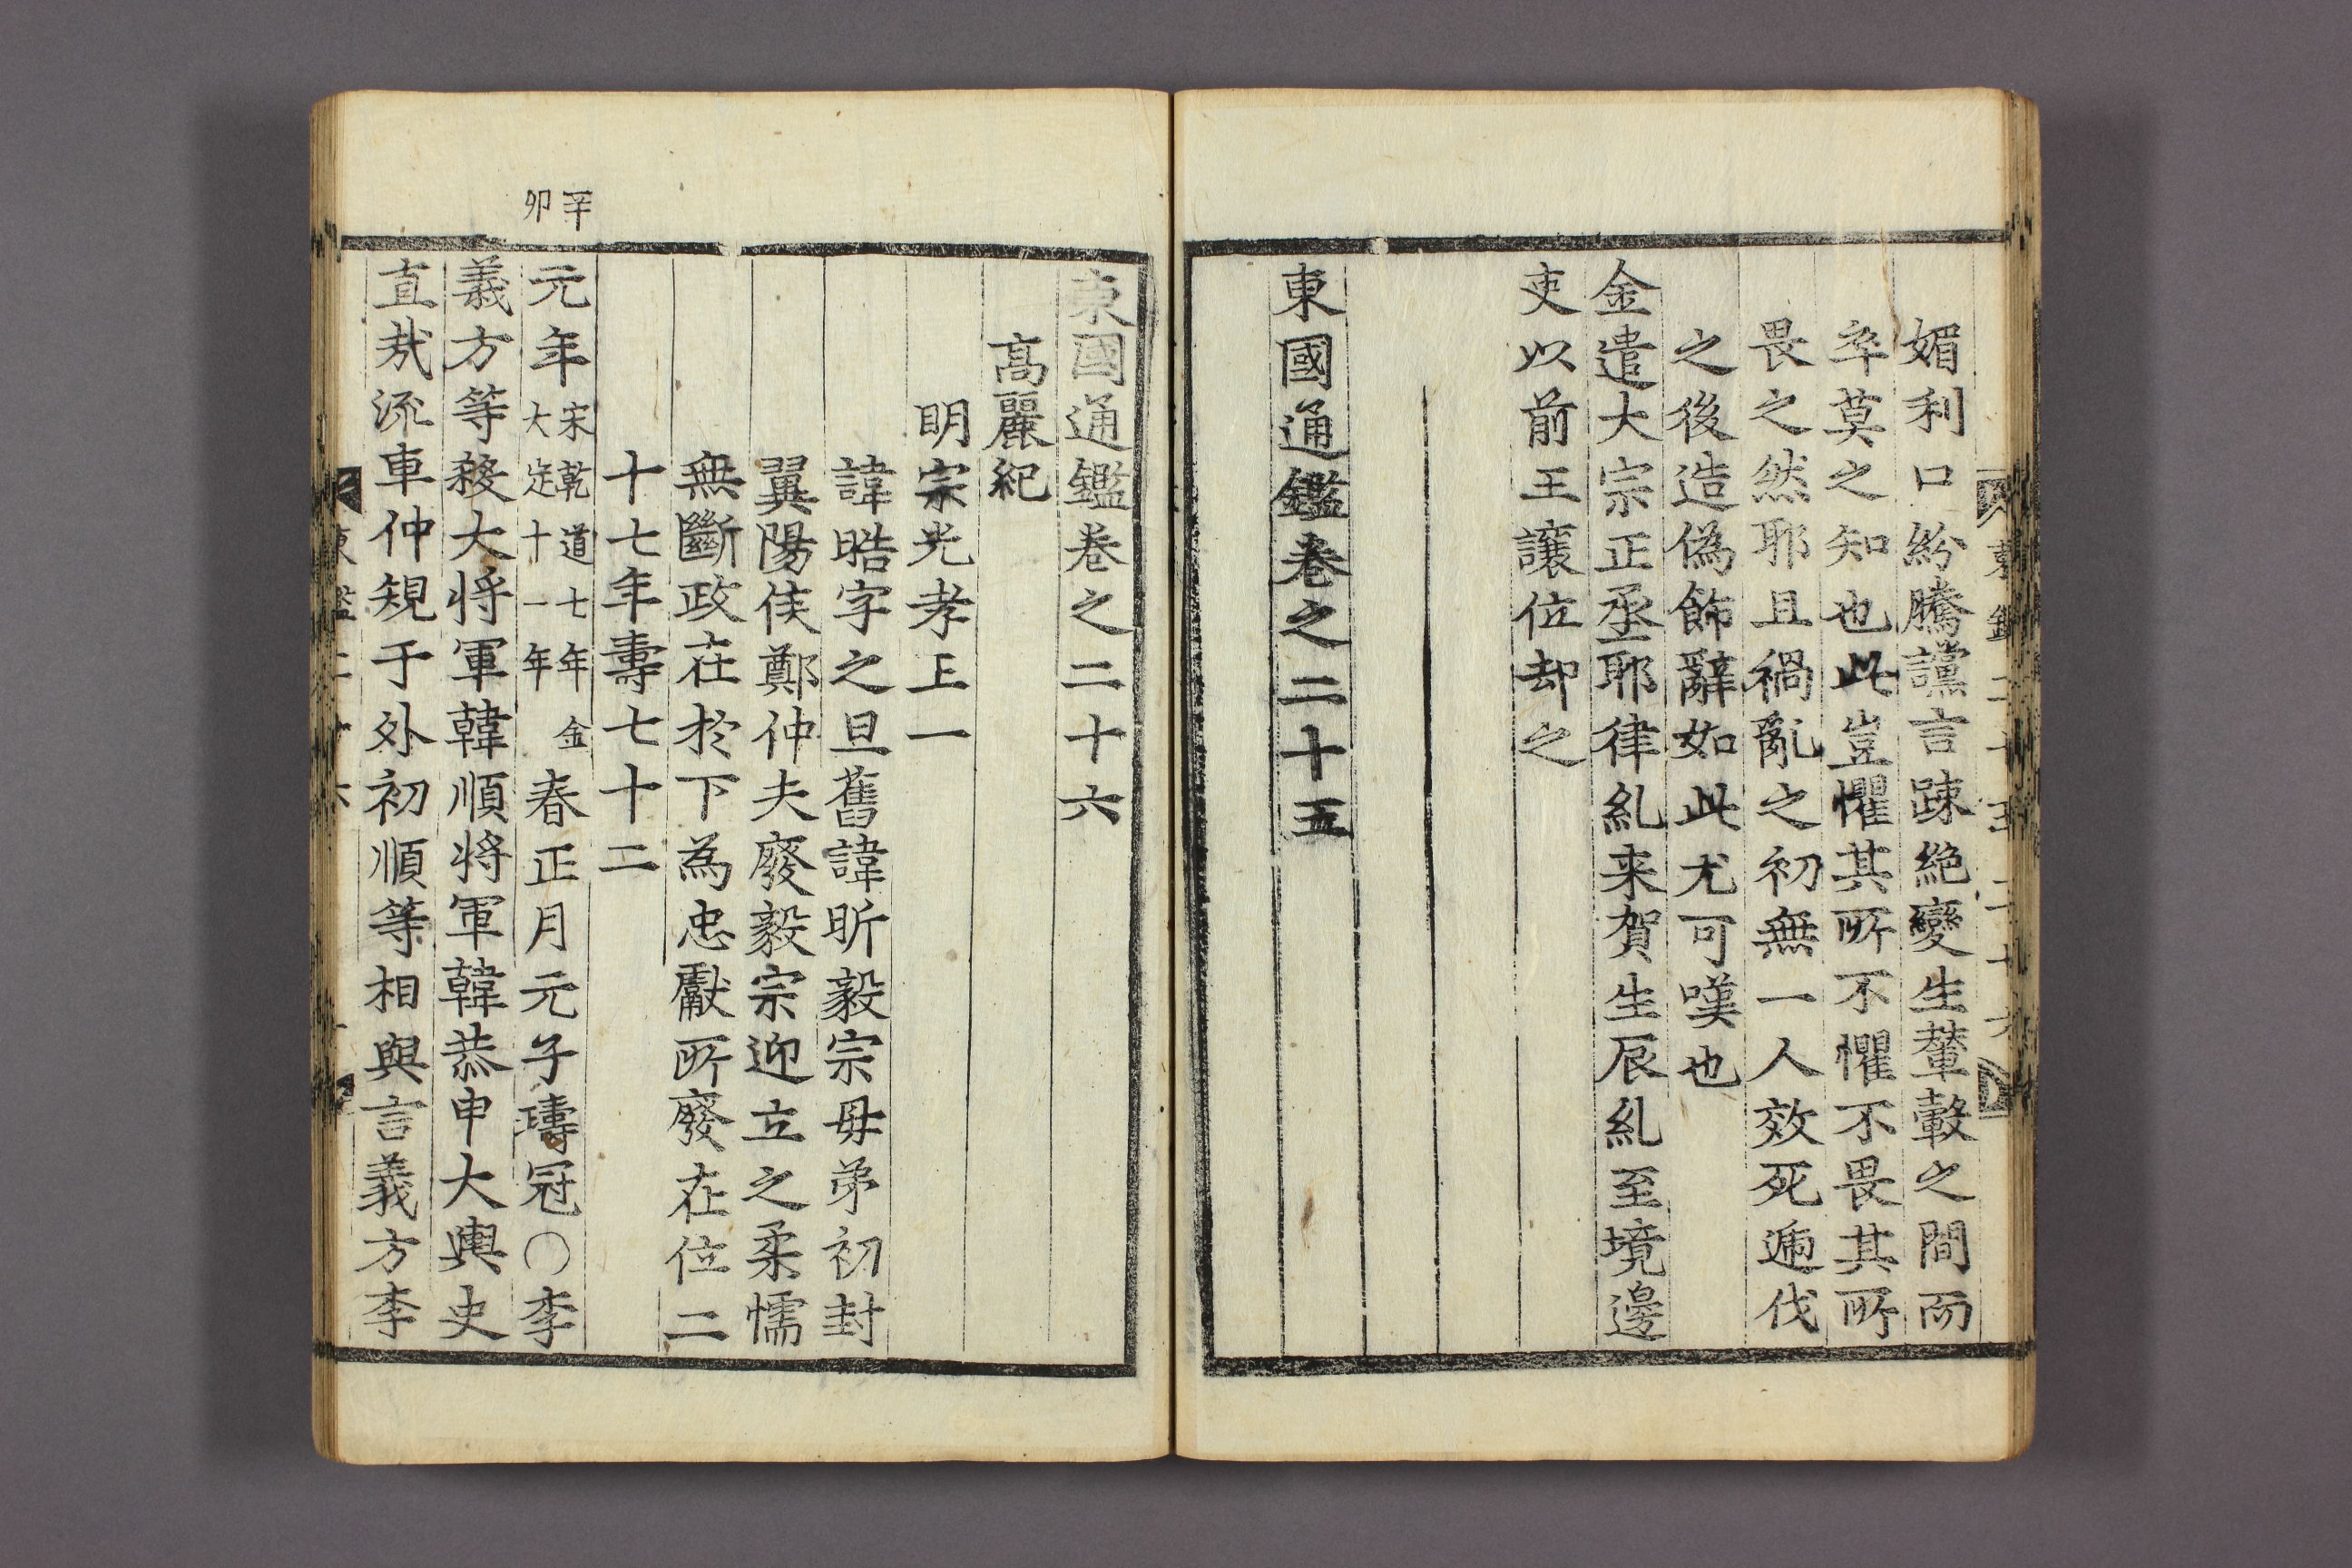 媚利口紛騰讜言踈絶變生輦轂之間而
卒莫之知也此豈懼其所不懼不畏其所
畏之然耶且禍亂之初無一人效死遁伐
之後造偽飾辭如此尤可嘆也
金遣大宗正丞耶律糺来賀生辰糺至境邊
吏以前王讓位却之
東國通鑑卷之二十五
東國通鑑卷之二十六
高麗紀
明宗光孝王一
諱晧字之旦舊諱昕毅宗母弟初封
翼陽侯鄭仲夫廢毅宗迎立之柔懦
無斷政在於下為忠獻所廢在位二
十七年壽七十二
辛卯
元年宋乾道七年金大定十一年春正月元子璹冠○李
義方等殺大将軍韓順将軍韓恭申大輿史
直哉流車仲規于外初順等相與言義方李